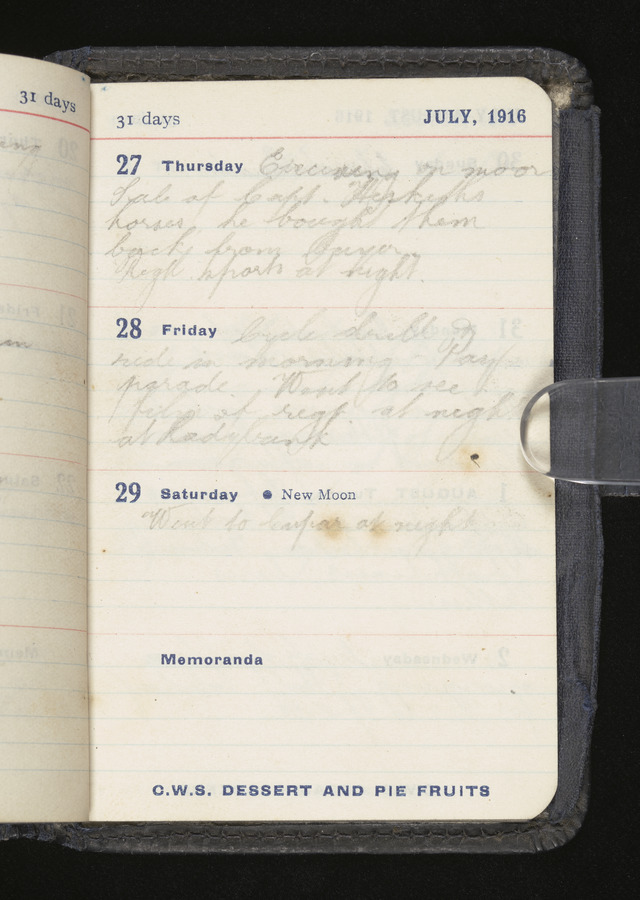 31 days
31 days JULY, 1916
27 Thursday Exercising on moor
Sale of Capt. Heskeths
horses, he bought them
back from buyer.
Regtl. sports at night.
28 Friday Cycle drill
ride in morning - Pay
parade. Went to see
of regt. at night
at Ladybank
29 Saturday ● New Moon
Went to Cupar at night
Memoranda
C.W.S. DESSERT AND PIE FRUITS